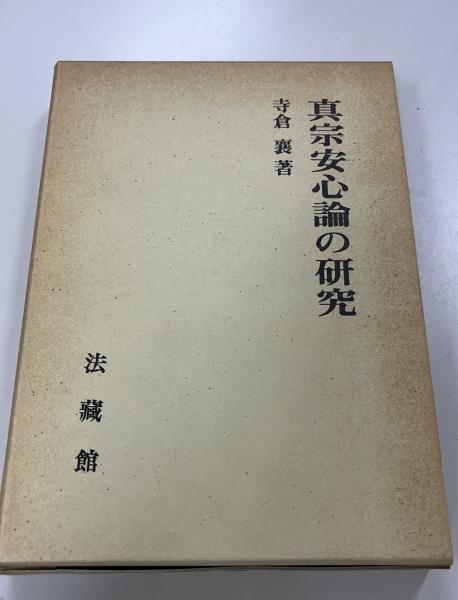 真宗安心論の研究
寺倉 襄著
法藏館